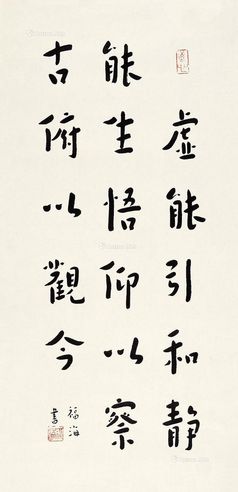 虚能引和静
能生悟仰以察
古俯以觀今
福海書